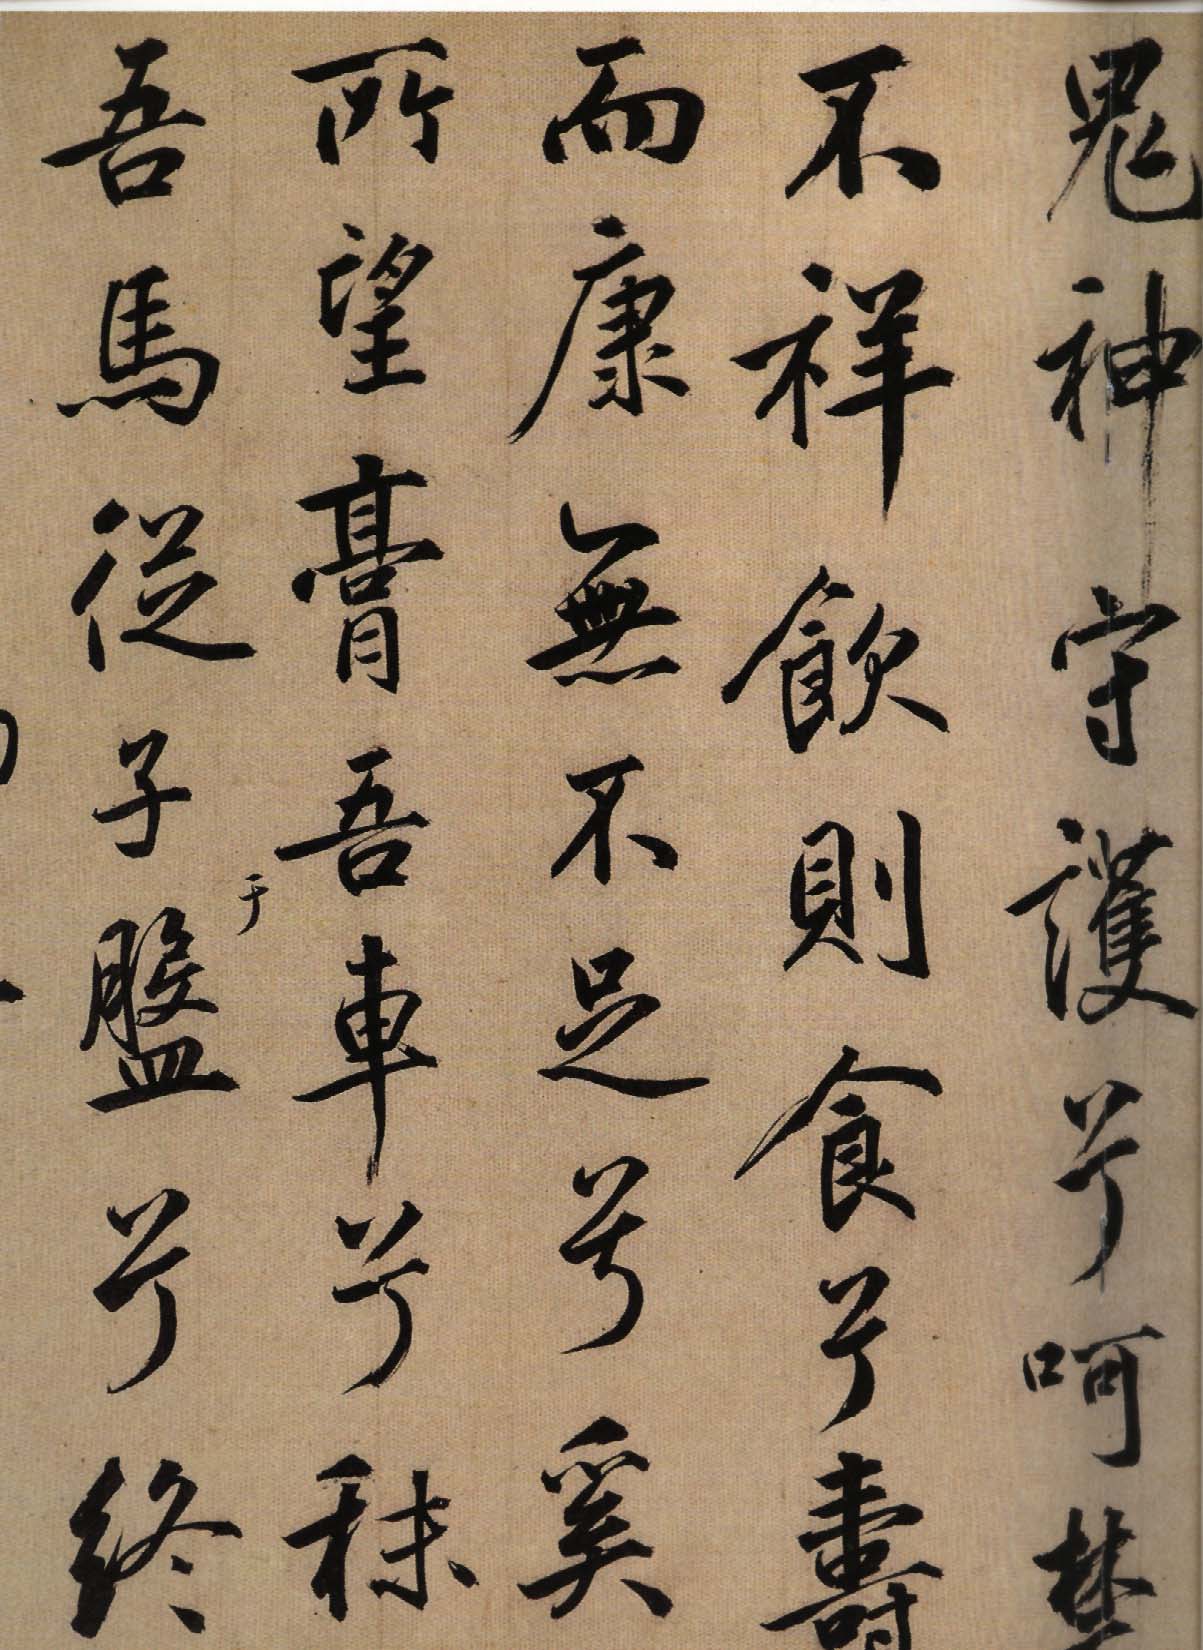 鬼神守護兮呵禁
不祥飲則食兮壽
而康無不足兮奚
所望膏吾車兮秣
吾馬從子于盤兮終